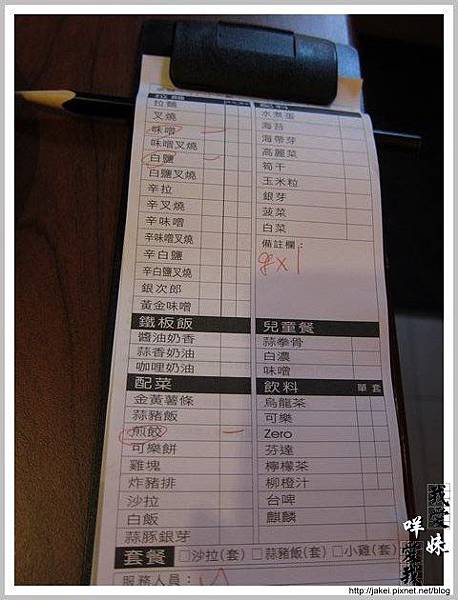 拉麵
拉麵
叉燒
味噌
味噌叉燒
白鹽
白鹽叉燒
辛拉
辛叉燒
辛味噌
辛味噌叉燒
辛白鹽
辛白鹽叉燒
銀次郎
黃金味噌
鐵板飯
醬油奶香
蒜香奶油
咖哩奶油
配菜
金黃薯條
蒜豬飯
煎餃
可樂餅
雞塊
炸豬排
沙拉
白飯
蒜豚銀芽
配料
水煮蛋
海苔
海帶芽
高麗菜
筍干
玉米粒
銀芽
菠菜
白菜
備註欄：
兒童餐
蒜拳骨
白濃
味噌
飲料 單 套
烏龍茶
可樂
Zero
芬達
檸檬茶
柳橙汁
台啤
麒麟
套餐 □沙拉(套) □蒜豬飯(套) □小雞(套)
服務人員：
我愛妹
咩愛我
http://jakei.pixnet.net/blog